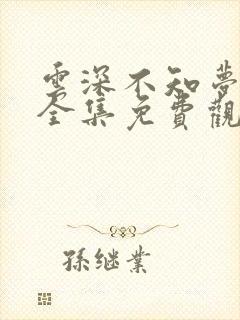 雲深不知夢
全集免費觀
孫继業